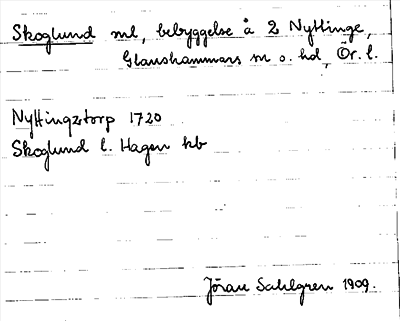 Skoglund ml, bebyggelse å 2 Nyttinge,
Glanshammars sn o. hd, Ör. l.
Nyttingstorp 1720
Skoglund l. Hagen kb
Jöran Sahlgren 1909.